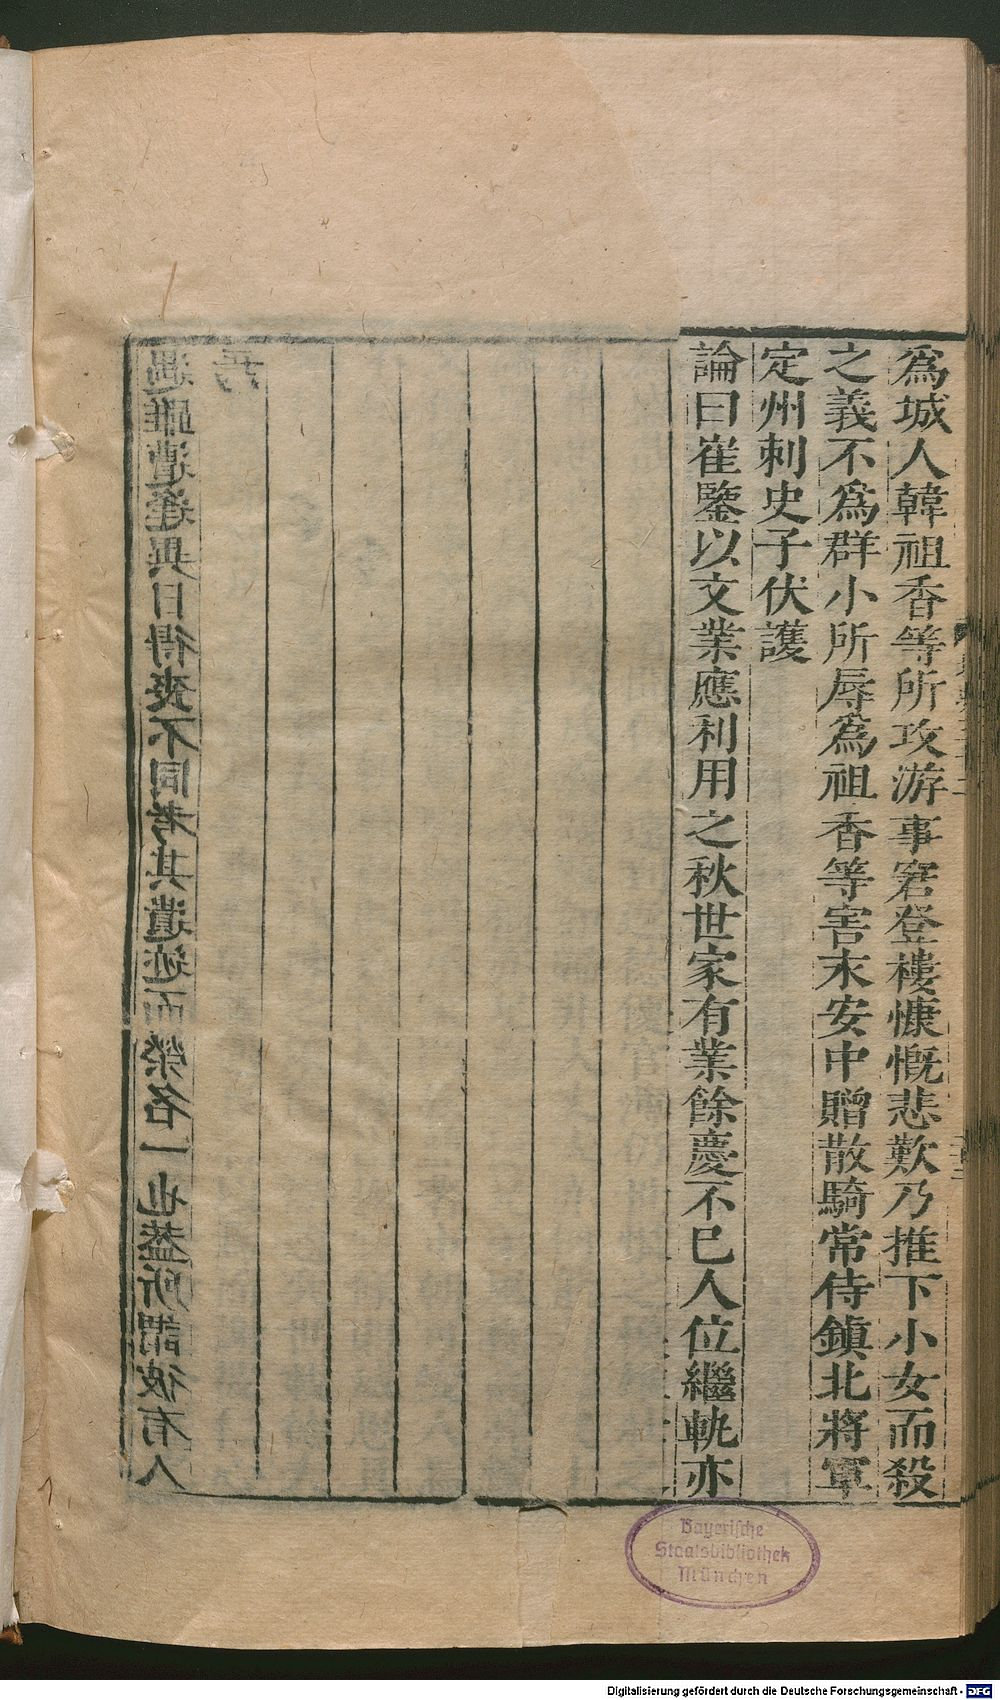 爲城人韓祖香等所攻游事窘登樓慷慨悲歎乃推下小女而殺
之義不爲群小所辱爲祖香等害末安中贈散騎常侍鎮北將軍
定州刺史子伏護
論曰崔鑒以文業應利用之秋世家有業餘慶不已人位繼軌亦
遇雖遭逢異日得喪不同考其遺迹而榮名一也蓋所謂彼有人
焉
Bayerische
Staatsbibliothek
München
Digitalisierung gefördert durch die Deutsche Forschungsgemeinschaft - DFG